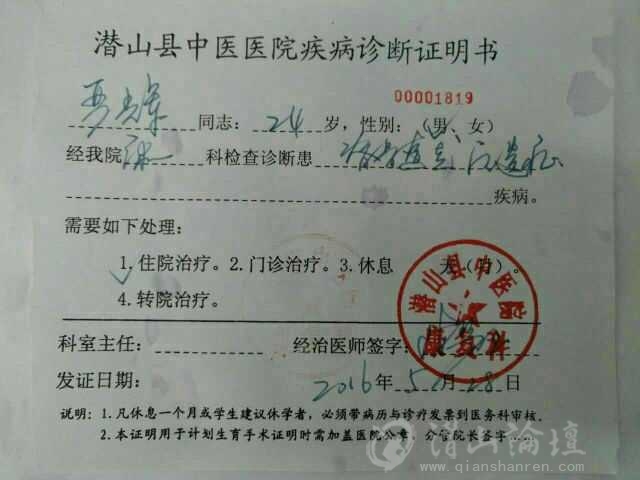 潜山县中医医院疾病诊断证明书
00001819
同志: 24 岁,性别:(男、女)
经我院 科检查诊断患 后遗症
疾病。
需要如下处理:
1.住院治疗。2.门诊治疗。3.休息 天(周)。
4.转院治疗。
潜山县中医院
科室主任: 经治医师签字:
发证日期: 2016年5月28日
说明:1.凡休息一个月或学生建议休学者,必须带病历与诊疗发票到医务科审核。
2.本证明用于计划生育手术证明时需加盖医院公章,分管院长签字……
潜山论坛
www.qianshanren.com